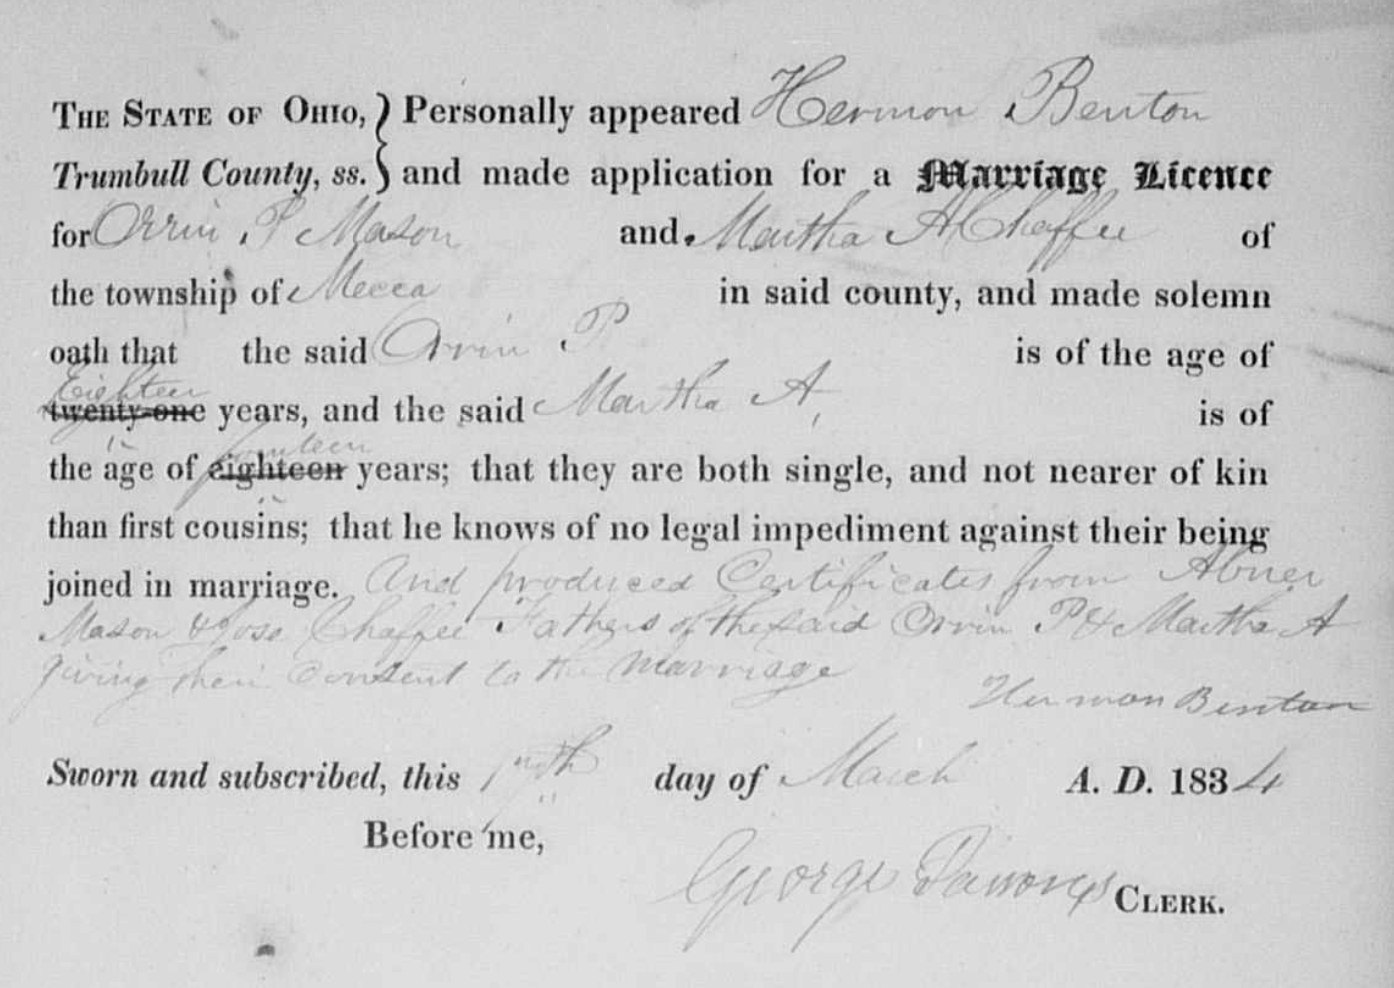 THE STATE OF OHIO, } Personally appeared Hermon Benton
Trumbull County, ss. } and made application for a Marriage Licence
for Orrin P Mason and Martha A Chaffee of
the township of Mecca in said county, and made solemn
oath that the said Orrin P is of the age of
Eighteen
twenty-one years, and the said Martha A, is of
fourteen
the age of eighteen years; that they are both single, and not nearer of kin
than first cousins; that he knows of no legal impediment against their being
joined in marriage. And produced Certificates from Abner
Mason & Chaffee Fathers of the said Orrin P & Martha A
giving their consent to the marriage
Hermon Benton
Sworn and subscribed, this day of March A. D. 1834
Before me,
George Parsons CLERK.